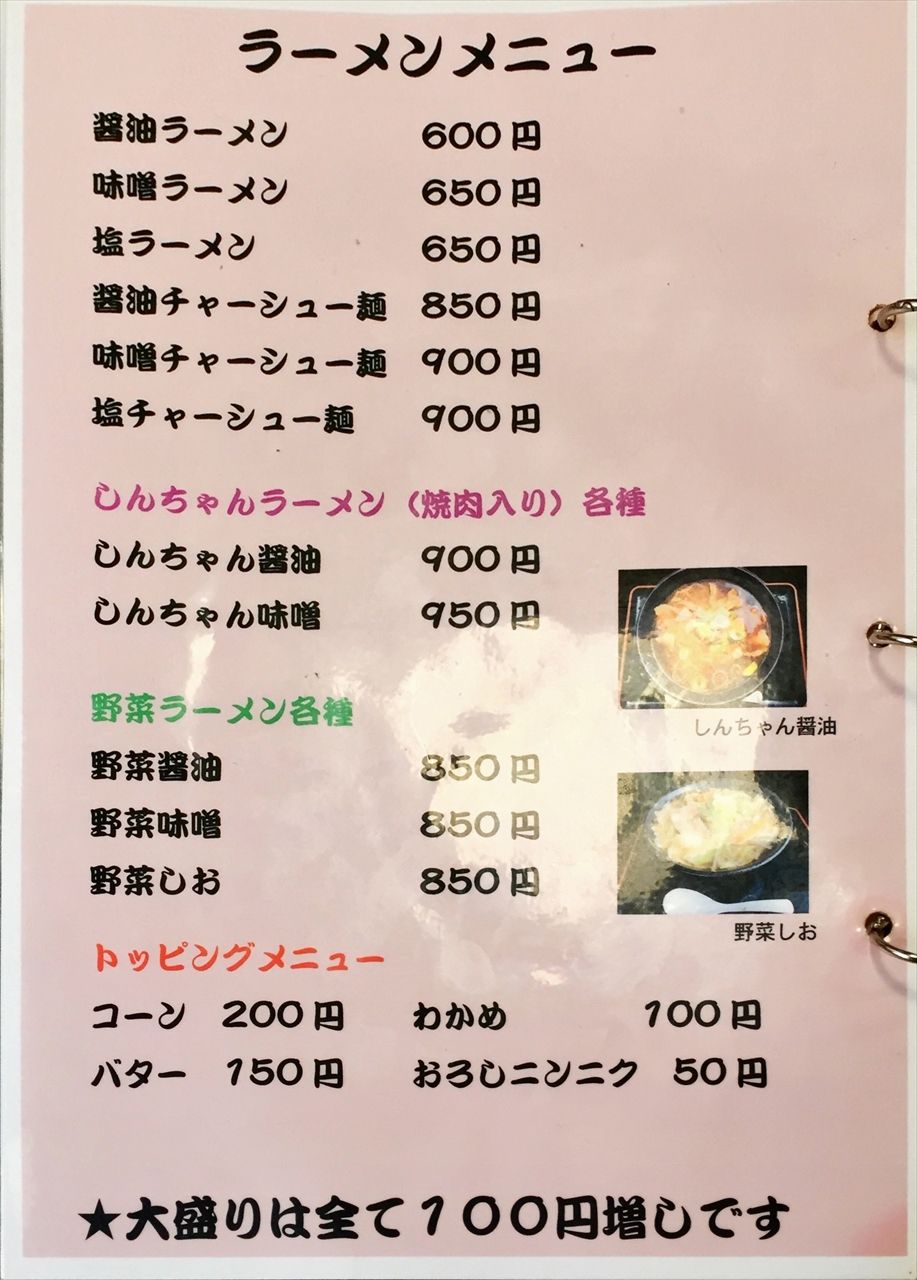 ラーメンメニュー
醤油ラーメン 600円
味噌ラーメン 650円
塩ラーメン 650円
醤油チャーシュー麺 850円
味噌チャーシュー麺 900円
塩チャーシュー麺 900円
しんちゃんラーメン（焼肉入り）各種
しんちゃん醤油 900円
しんちゃん味噌 950円
しんちゃん醤油
野菜ラーメン各種
野菜醤油 850円
野菜味噌 850円
野菜しお 850円
野菜しお
トッピングメニュー
コーン 200円 わかめ 100円
バター 150円 おろしニンニク 50円
★大盛りは全て１００円増しです